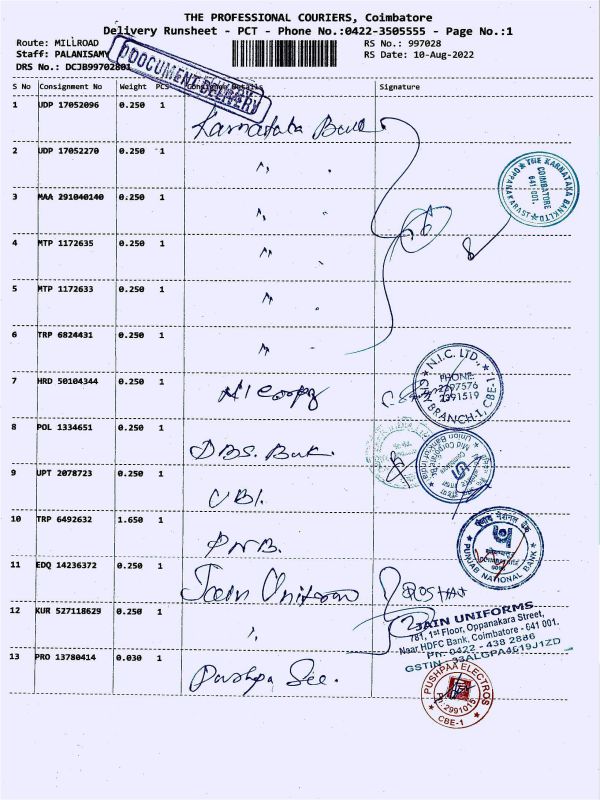 THE PROFESSIONAL COURIERS, Coimbatore
Delivery Runsheet - PCT - Phone No.:0422-3505555 - Page No.:1
Route: MILLROAD
RS No.: 997028
Staff: PALANISAMY
RS Date: 10-Aug-2022
DRS No.: DCJB99702801
DOCUMENT DELIVERY
S No Consignment No Weight PCS Consignee Details Signature
1 UDP 17052096 0.250 1 Karnataka Bank
2 UDP 17052270 0.250 1 "
3 MAA 291040140 0.250 1 "
THE KARNATAKA BANK LTD
OPPANAKARA ST.
COIMBATORE
641 001.
4 MTP 1172635 0.250 1 "
5 MTP 1172633 0.250 1 "
6 TRP 6824431 0.250 1 "
7 HRD 50104344 0.250 1
N.I.C. LTD.,
PHONE:
2397576
2391519
BRANCH-1, CBE-1
8 POL 1334651 0.250 1 DBS. Bank.
Union Bank of India
9 UPT 2078723 0.250 1 UBI.
10 TRP 6492632 1.650 1 PNB.
पंजाब नैशनल बैंक
PUNJAB NATIONAL BANK
11 EDQ 14236372 0.250 1 Jain Uniform
12 KUR 527118629 0.250 1 "
JAIN UNIFORMS
781, 1st Floor, Oppanakara Street,
Near HDFC Bank, Coimbatore - 641 001.
Ph: 0422 - 438 2886
GSTIN - 33ALGPA4619J1ZD
13 PRO 13780414 0.030 1 Pushpa Ele.
PUSHPAA ELECTROS
P:2991015
CBE-1